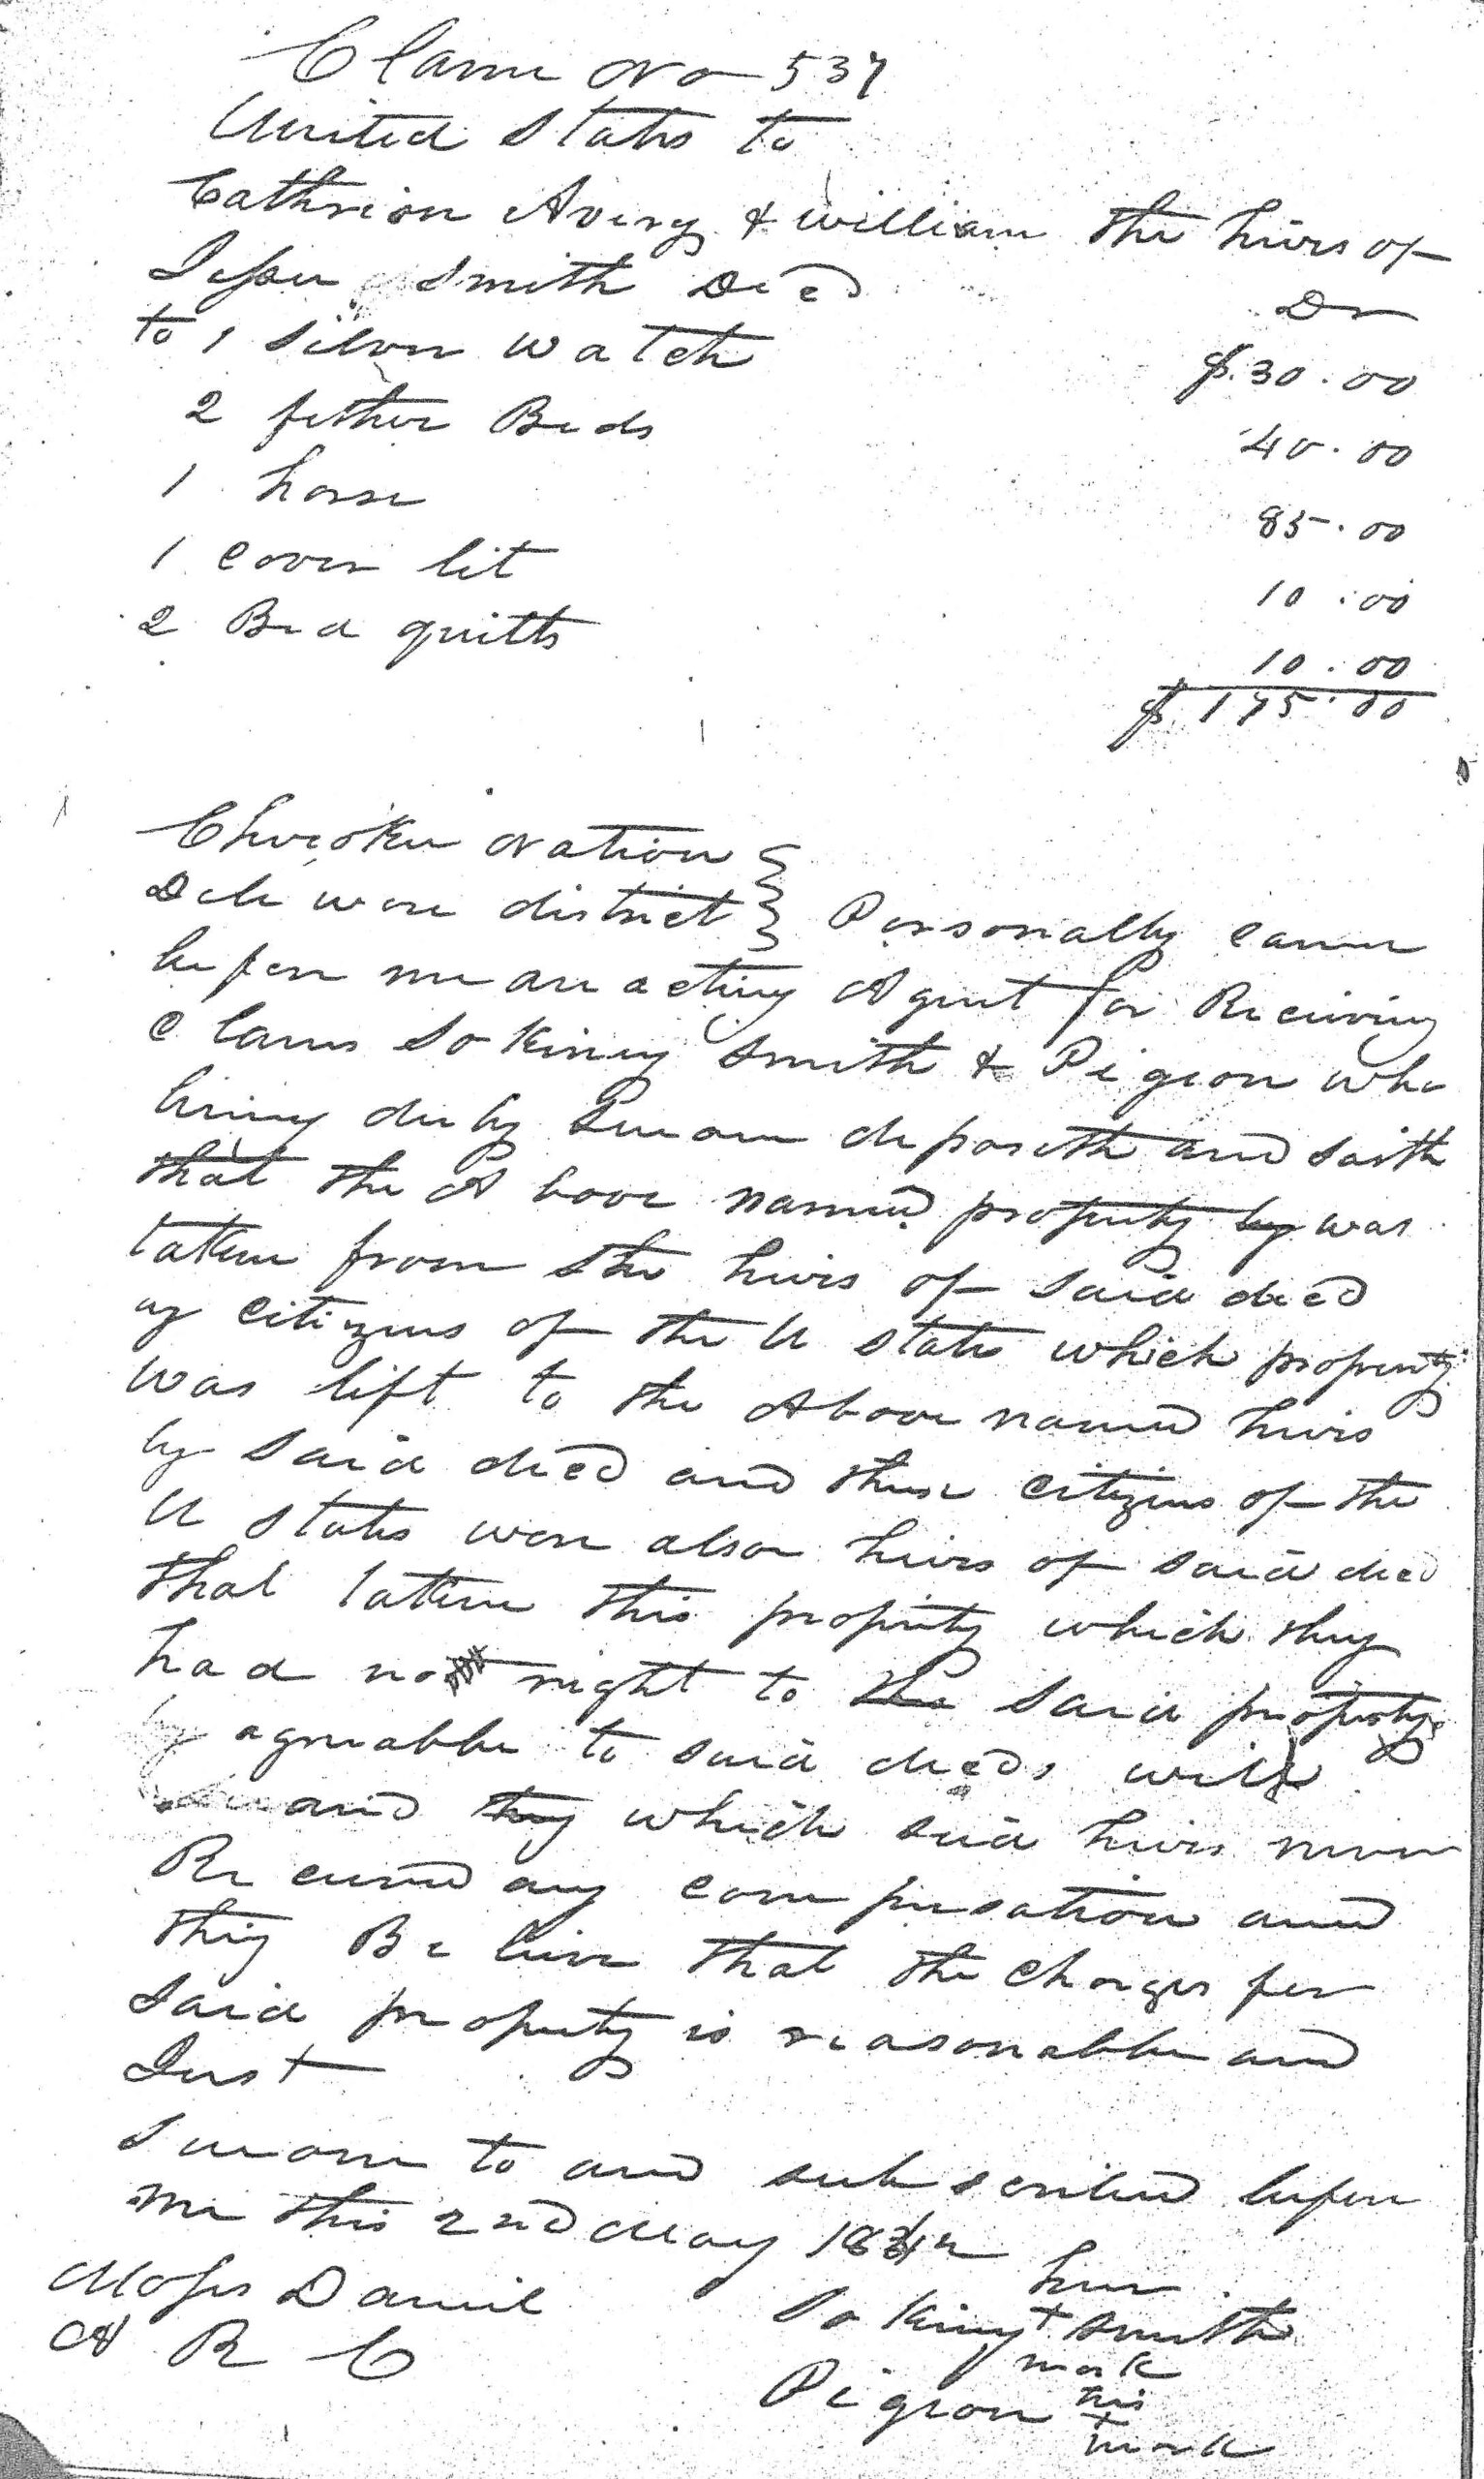 Clame No 537
United States to
Cathrion Avery & William the heirs of
Jesse Smith Decd Dr
to 1 Silver watch $.30.00
2 fether Beds 40.00
1 horse 85.00
1 cover lit 10.00
2 Bed quilts 10.00
$.175.00
Cherokee Nation }
Dele ware district } Personally came
before me an acting Agent for Receiving
Clams So Kiney Smith & Pigeon who
being duly Sworn deposeth and saith
that the Above named property by was
taken from the heirs of said decd
by citizens of the U States which property
was left to the Above named heirs
by said decd and these citizens of the
U States were also heirs of said decd
that taken this property which they
had no right to the said property
by agreable to said decds will
and they which said heirs never
Received any compensation and
they Beleive that the charges for
said property is reasonable and
Just
Sworn to and subscribed before
me this 2nd May 1842
Moses Daniel her
A R C So Kiney + Smith
mark
Pigeon his
+
mark